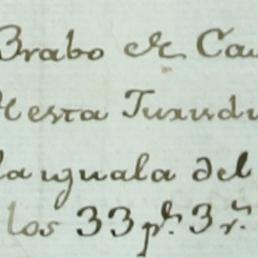 Brabo de Ca
esta Jurisdi
la yguala del
los 33 p.s 3 r.s